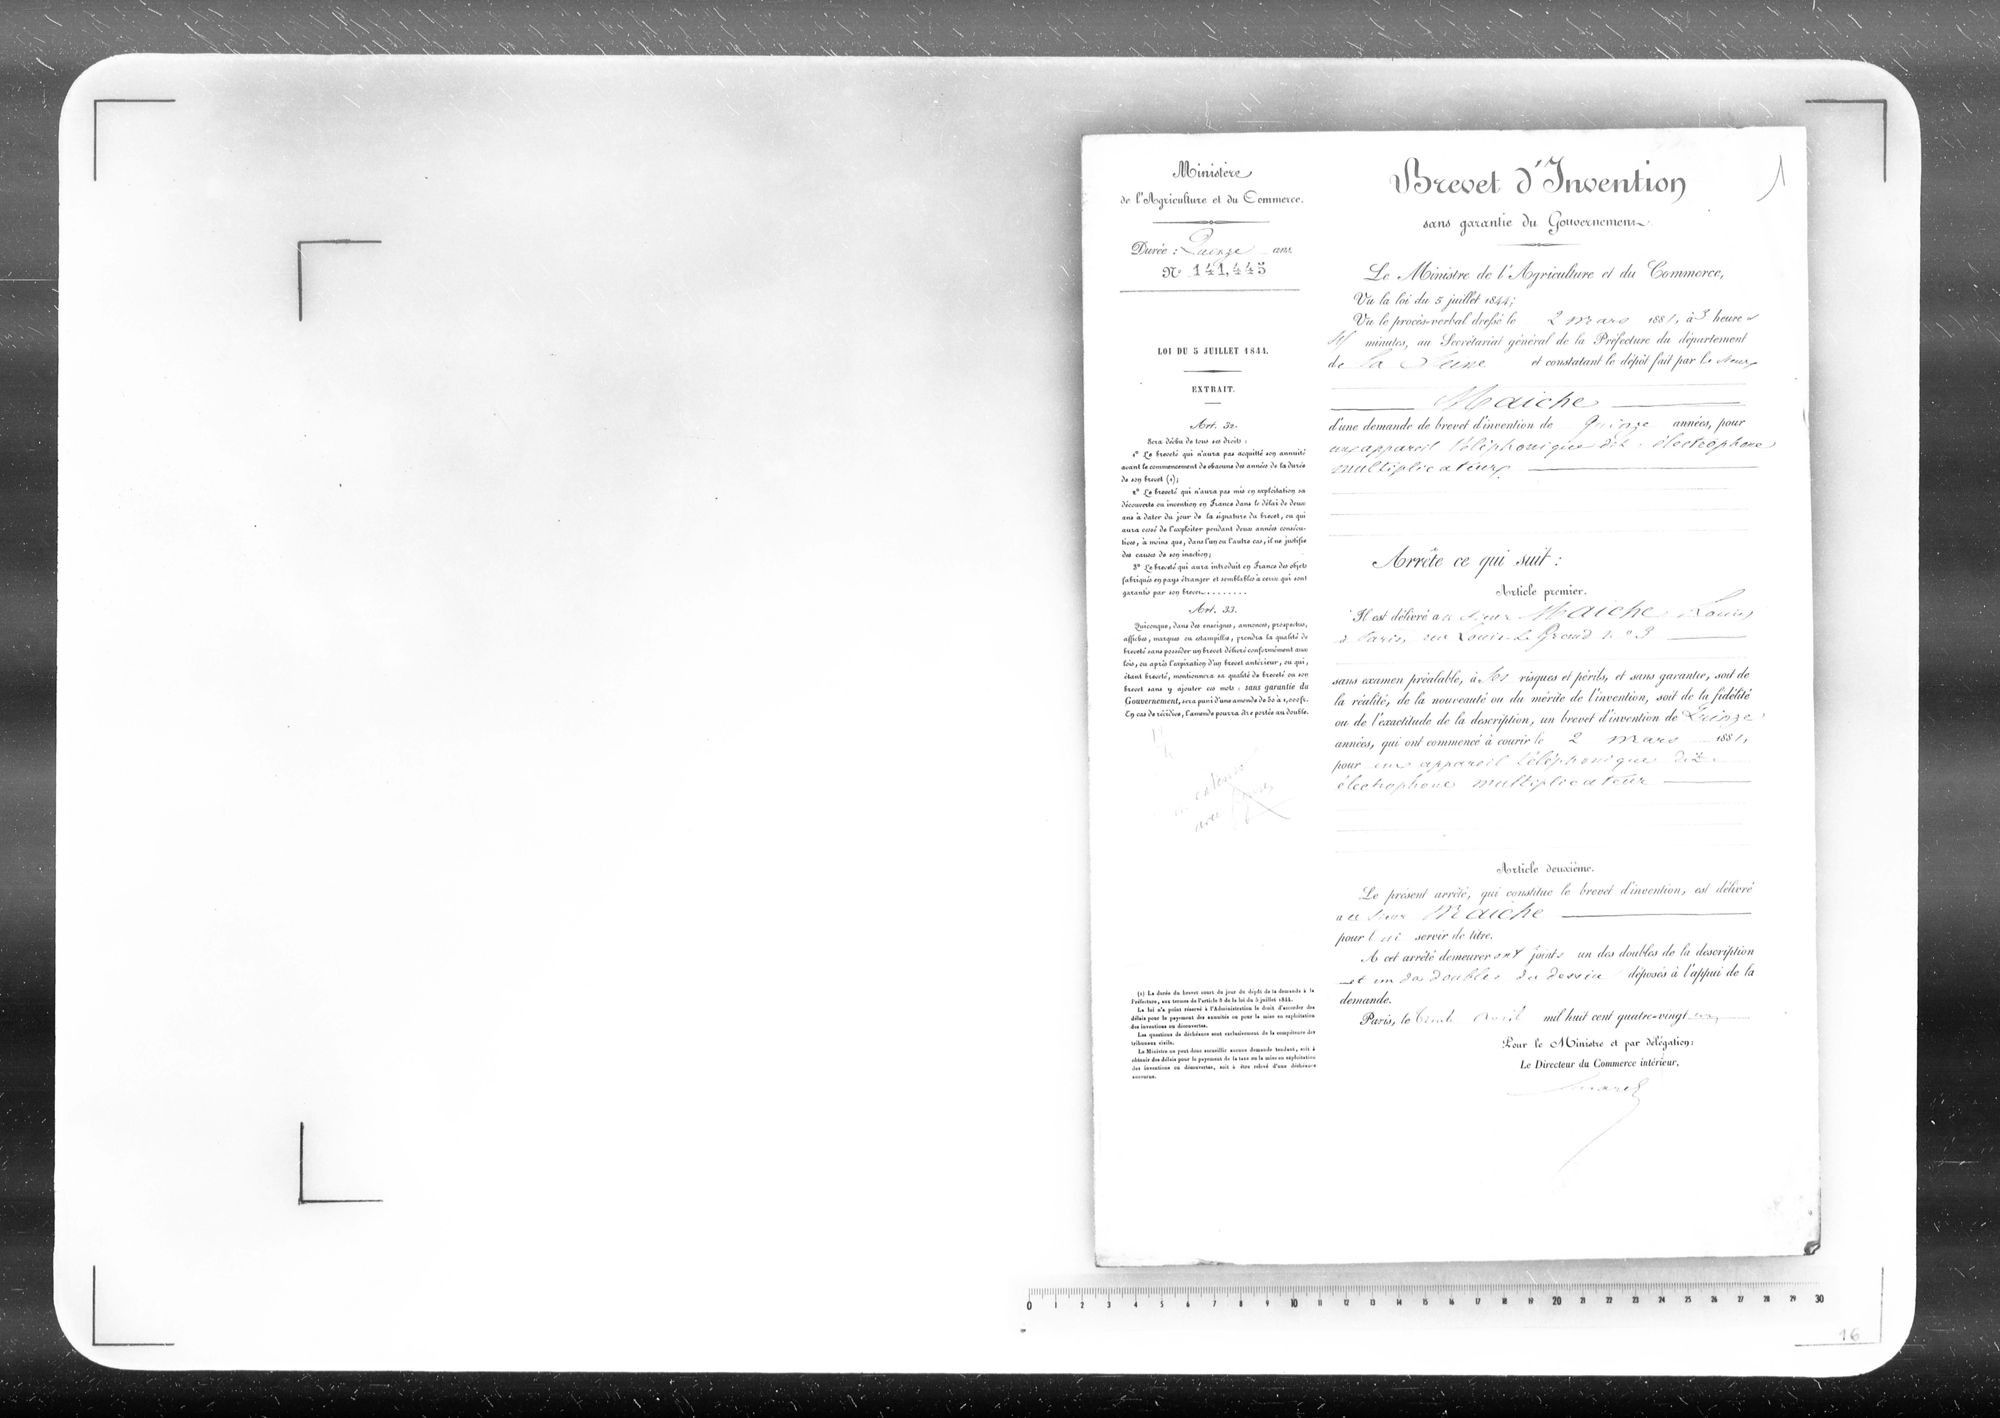 Ministère
de l'Agriculture et du Commerce.
Durée : Quinze ans
N° 141,445
LOI DU 5 JUILLET 1844.
EXTRAIT.
Art. 32.
Sera déchu de tous ses droits :
1° Le breveté qui n'aura pas acquitté son annuité
avant le commencement de chacune des années de la durée
de son brevet (1);
2° Le breveté qui n'aura pas mis en exploitation sa
découverte ou invention en France dans le délai de deux
ans à dater du jour de la signature du brevet, ou qui
aura cessé de l'exploiter pendant deux années consécu-
tives, à moins que, dans l'un ou l'autre cas, il ne justifie
des causes de son inaction;
3° Le breveté qui aura introduit en France des objets
fabriqués en pays étranger et semblables à ceux qui sont
garantis par son brevet.........
Art. 33.
Quiconque, dans des enseignes, annonces, prospectus,
affiches, marques ou estampilles, prendra la qualité de
breveté sans posséder un brevet délivré conformément aux
lois, ou après l'expiration d'un brevet antérieur, ou qui,
étant breveté, mentionnera sa qualité de breveté ou son
brevet sans y ajouter ces mots : sans garantie du
Gouvernement, sera puni d'une amende de 50 à 1,000 fr.
En cas de récidive, l'amende pourra être portée au double.
avec
(1) La durée du brevet court du jour du dépôt de la demande à la
Préfecture, aux termes de l'article 8 de la loi du 5 juillet 1844.
La loi n'a point réservé à l'Administration le droit d'accorder des
délais pour le payement des annuités ou pour la mise en exploitation
des inventions ou découvertes.
Les questions de déchéance sont exclusivement de la compétence des
tribunaux civils.
Le Ministre ne peut donc accueillir aucune demande tendant, soit à
obtenir des délais pour le payement de la taxe ou la mise en exploitation
des inventions ou découvertes, soit à être relevé d'une déchéance
encourue.
1
Brevet d'Invention
sans garantie du Gouvernement.
Le Ministre de l'Agriculture et du Commerce,
Vu la loi du 5 juillet 1844;
Vu le procès-verbal dressé le 2 mars 1881, à 3 heures
minutes, au Secrétariat général de la Préfecture du département
de la Seine et constatant le dépôt fait par le sieur
Maiche
d'une demande de brevet d'invention de quinze années, pour
un appareil téléphonique dit : électrophone
multiplicateur
Arrête ce qui suit :
Article premier.
Il est délivré au sieur Maiche, Louis,
à Paris, rue Louis-le-Grand n° 3
sans examen préalable, à ses risques et périls, et sans garantie, soit de
la réalité, de la nouveauté ou du mérite de l'invention, soit de la fidélité
ou de l'exactitude de la description, un brevet d'invention de quinze
années, qui ont commencé à courir le 2 mars 1881,
pour un appareil téléphonique dit :
électrophone multiplicateur
Article deuxième.
Le présent arrêté, qui constitue le brevet d'invention, est délivré
au sieur Maiche
pour lui servir de titre.
A cet arrêté demeureront joints un des doubles de la description
et un des doubles du dessin déposés à l'appui de la
demande.
Paris, le trente avril mil huit cent quatre-vingt un
Pour le Ministre et par délégation:
Le Directeur du Commerce intérieur,
0 1 2 3 4 5 6 7 8 9 10 11 12 13 14 15 16 17 18 19 20 21 22 23 24 25 26 27 28 29 30
16